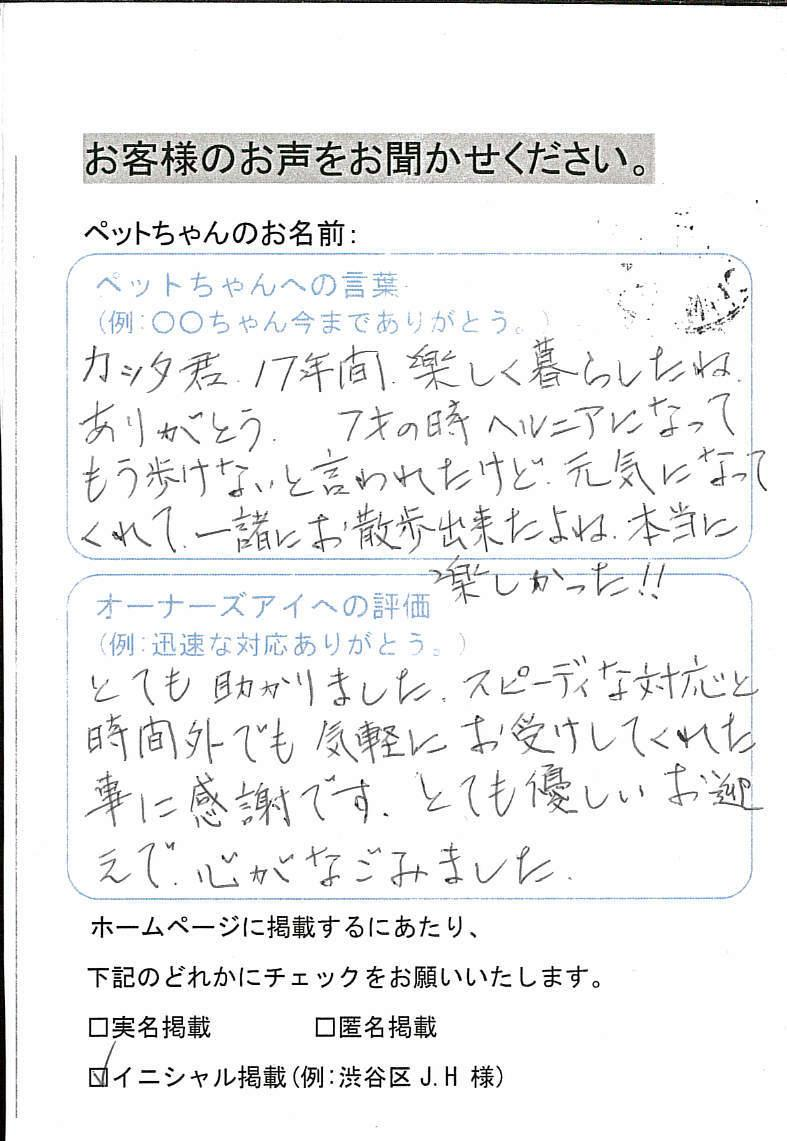 お客様のお声をお聞かせください。
ペットちゃんのお名前:
ペットちゃんへの言葉
(例:〇〇ちゃん今までありがとう。)
カンタ君、17年間、楽しく暮らしたね、
ありがとう、 7才の時ヘルニアになって
もう歩けないと言われたけど、元気になって
くれて、一諸にお散歩出来たよね、本当に
楽しかった!!
オーナーズアイへの評価
(例:迅速な対応ありがとう。)
とても助かりました、スピーディな対応と
時間外でも気軽にお受けしてくれた
事に感謝です、とても優しいお迎
えで、心がなごみました、
ホームページに掲載するにあたり、
下記のどれかにチェックをお願いいたします。
□実名掲載 □匿名掲載
☑イニシャル掲載(例:渋谷区J.H 様)